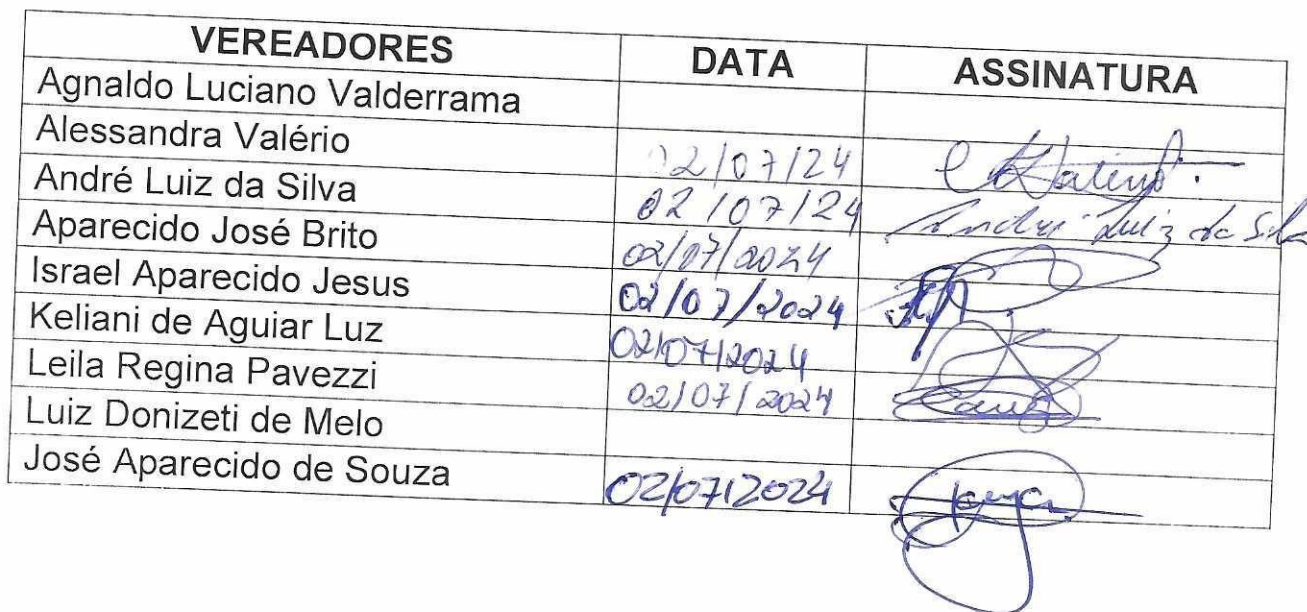 VEREADORES DATA ASSINATURA
Agnaldo Luciano Valderrama
Alessandra Valério 02/07/24
André Luiz da Silva 02/07/24 André Luiz da Silva
Aparecido José Brito 02/07/2024
Israel Aparecido Jesus 02/07/2024
Keliani de Aguiar Luz 02/07/2024
Leila Regina Pavezzi 02/07/2024
Luiz Donizeti de Melo
José Aparecido de Souza 02/07/2024